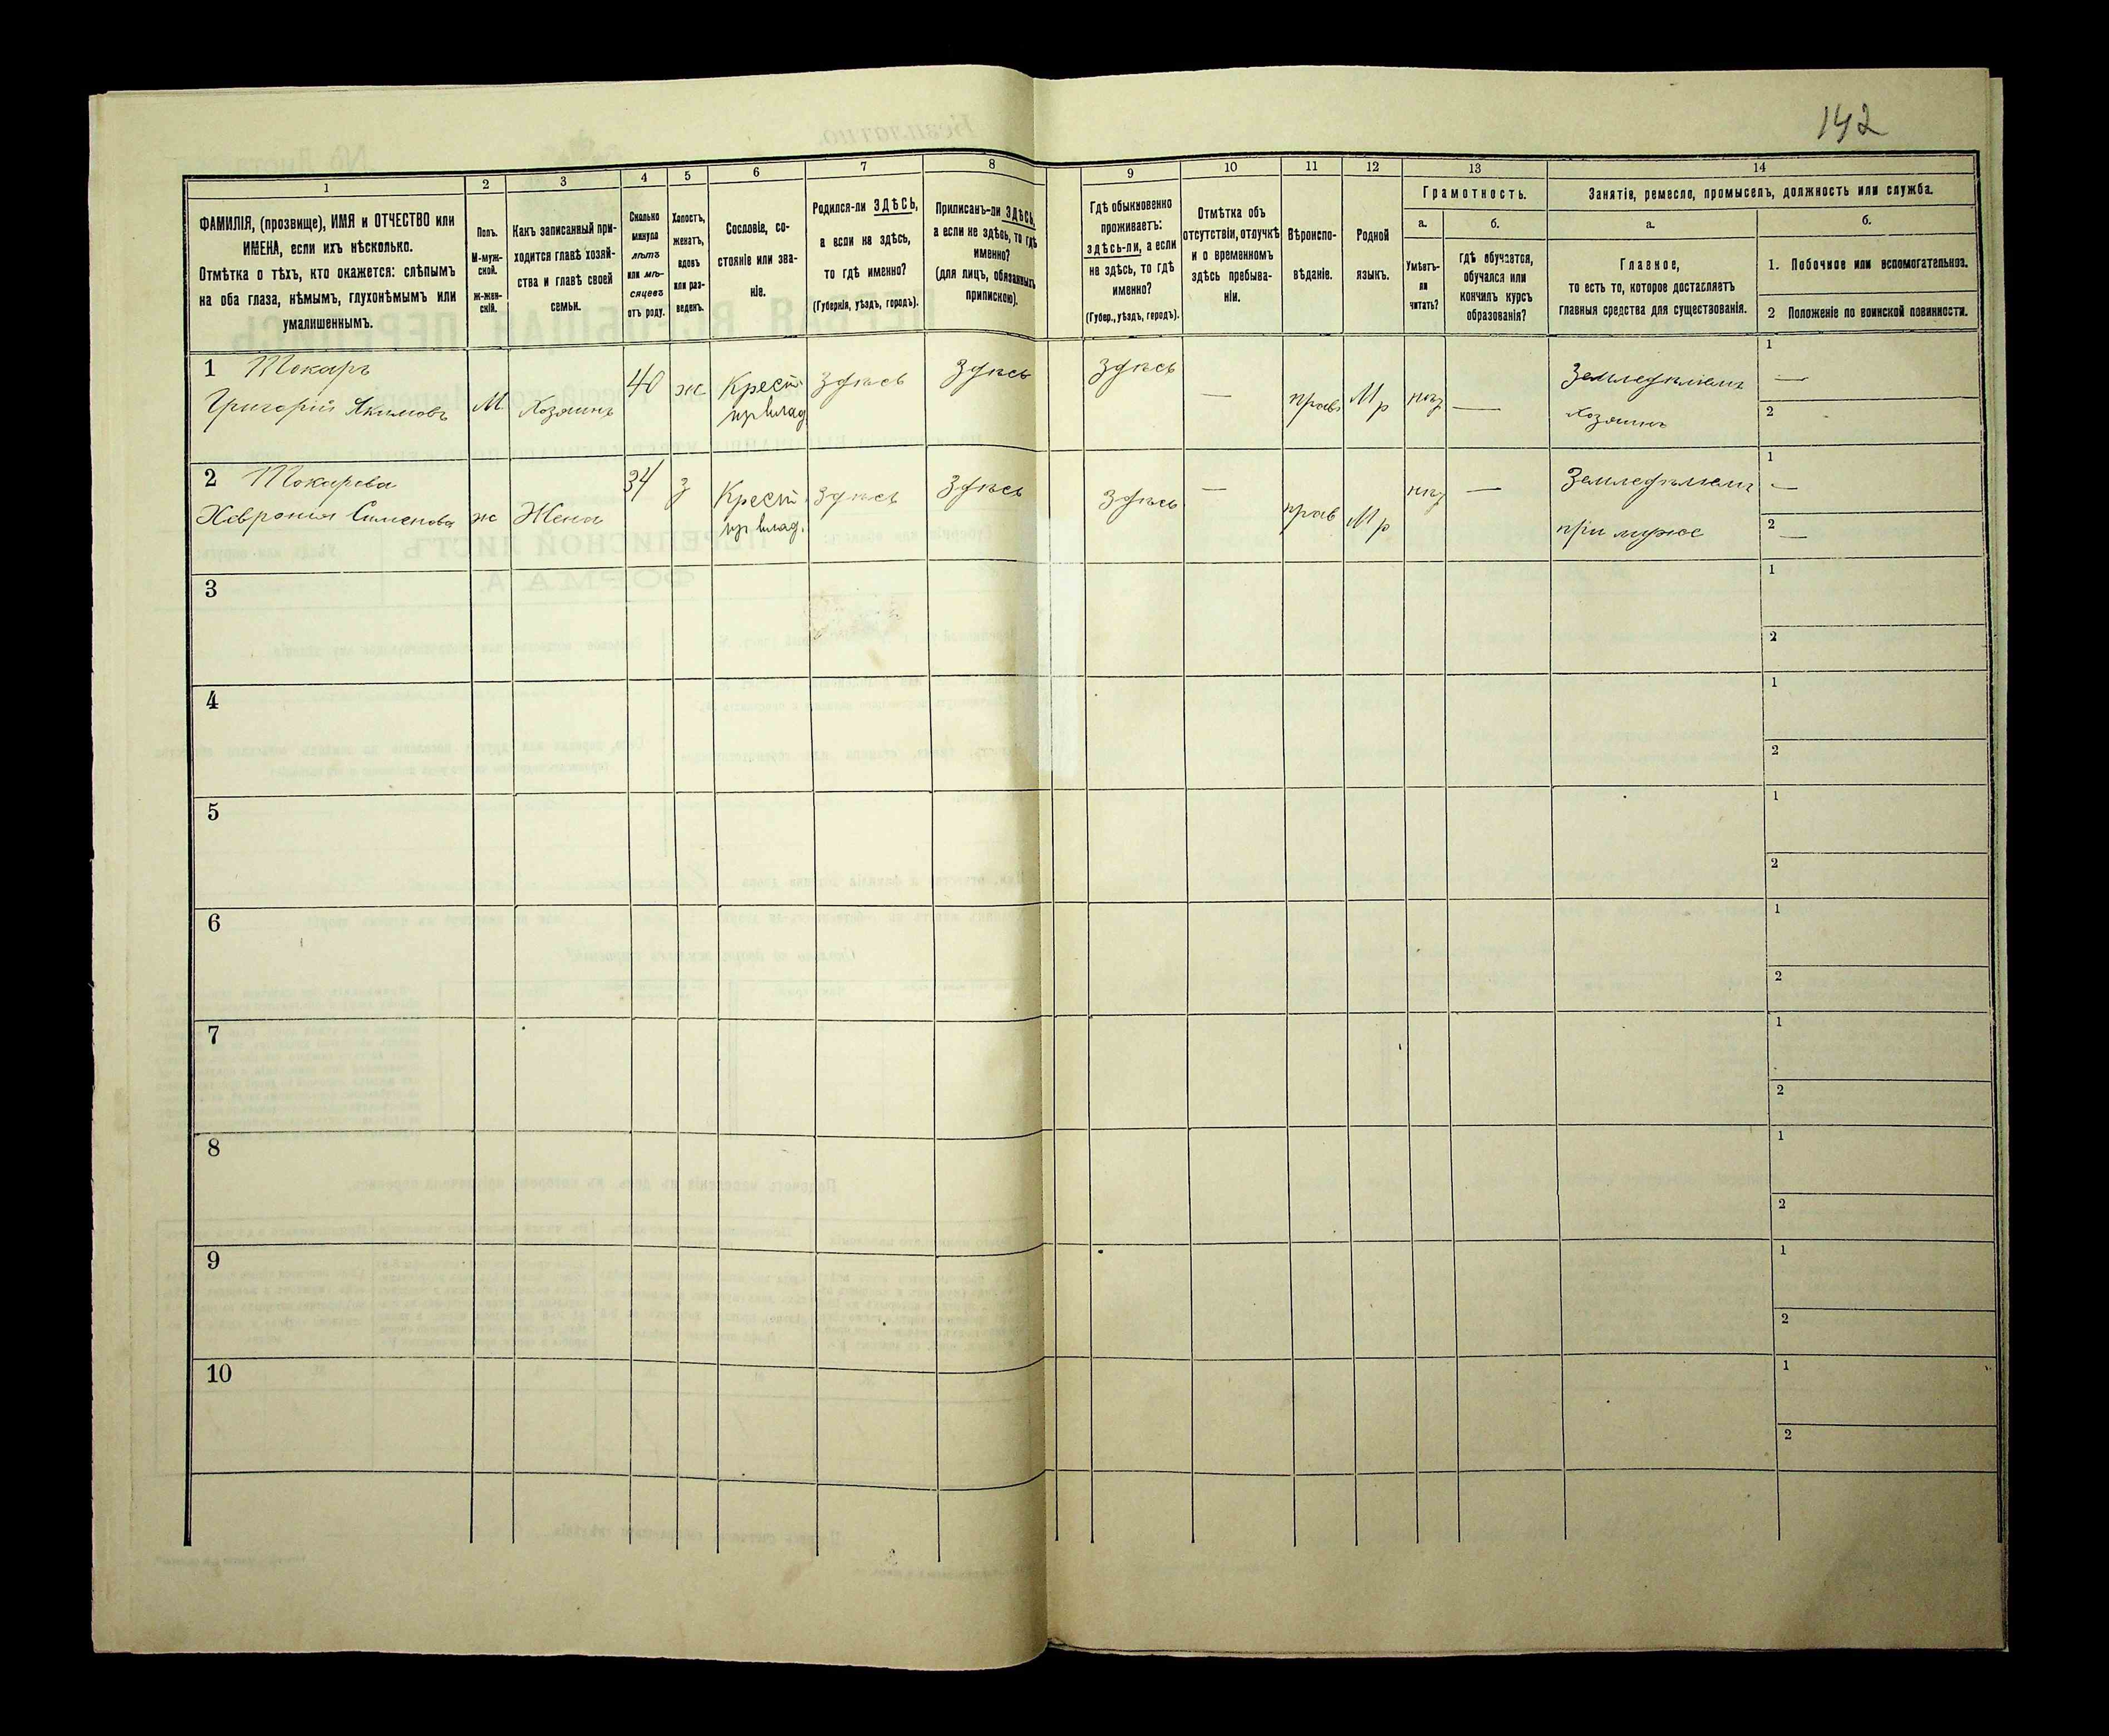 142
1 2 3 4 5 6 7 8 9 10 11 12 13 14
ФАМИЛІЯ, (прозвище), ИМЯ и ОТЧЕСТВО или
ИМЕНА, если ихъ нѣсколько.
Отмѣтка о тѣхъ, кто окажется: слѣпымъ
на оба глаза, нѣмымъ, глухонѣмымъ или
умалишеннымъ.
Полъ.
М-муж-
ской.
Ж-жен-
скій.
Какъ записанный при-
ходится главѣ хозяй-
ства и главѣ своей
семьи.
Сколько
минуло
лѣтъ
или мѣ-
сяцевъ
отъ роду.
Холостъ,
женатъ,
вдовъ
или раз-
веденъ.
Сословіе, со-
стояніе или зва-
ніе.
Родился-ли ЗДѢСЬ,
а если не здѣсь,
то гдѣ именно?
(Губернія, уѣздъ, городъ).
Приписанъ-ли ЗДѢСЬ,
а если не здѣсь, то гдѣ
именно?
(для лицъ, обязанныхъ
припискою).
Гдѣ обыкновенно
проживаетъ:
здѣсь-ли, а если
не здѣсь, то гдѣ
именно?
(Губер., уѣздъ, городъ).
Отмѣтка объ
отсутствіи, отлучкѣ
и о временномъ
здѣсь пребыва-
ніи.
Вѣроиспо-
вѣданіе.
Родной
языкъ.
Грамотность.
а. б.
Умѣетъ-
ли
читать?
гдѣ обучается,
обучался или
кончилъ курсъ
образованія?
Занятія, ремесло, промыселъ, должность или служба.
а. б.
Главное,
то есть то, которое доставляетъ
главныя средства для существованія.
1. Побочное или вспомогательное.
2 Положеніе по воинской повинности.
1 Токарь
Григорій Якимовъ
М Хозяинъ 40 ж Крест.
из влад
Здѣсь Здѣсь Здѣсь — прав Мр нѣт —
Земледѣлецъ
хозяинъ
1 —
2
2 Токарева
Хеврония Сименова
ж Жена 34 з Крест.
из влад.
Здѣсь Здѣсь Здѣсь — прав Мр нѣт —
Земледѣлецъ
при мужѣ
1 —
2 —
3 1
2
4 1
2
5 1
2
6 1
2
7 1
2
8 1
2
9 1
2
10 1
2